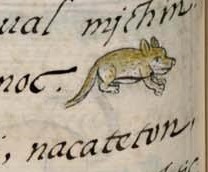 ual mjchin
noc.
, nacateton,